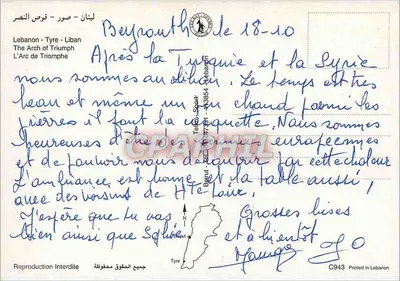 لبنان - صور - قوس النصر
Lebanon - Tyre - Liban
The Arch of Triumph
L'Arc de Triomphe
Beyrouth le 18-10
Après la Turquie et la Syrie
nous sommes au Liban. Le temps est très
beau et même un peu chaud parmi les
pierres il faut la casquette. Nous sommes
heureuses d'être européennes
et de pouvoir nous découvrir par cette chaleur
L'ambiance est bonne et la table aussi,
avec des voisins de Hte Loire.
J'espère que tu vas
bien ainsi que Sylvie
Grosses bises
et à bientôt
Tyre
Reproduction Interdite
جميع الحقوق محفوظة
C943
Printed in Lebanon